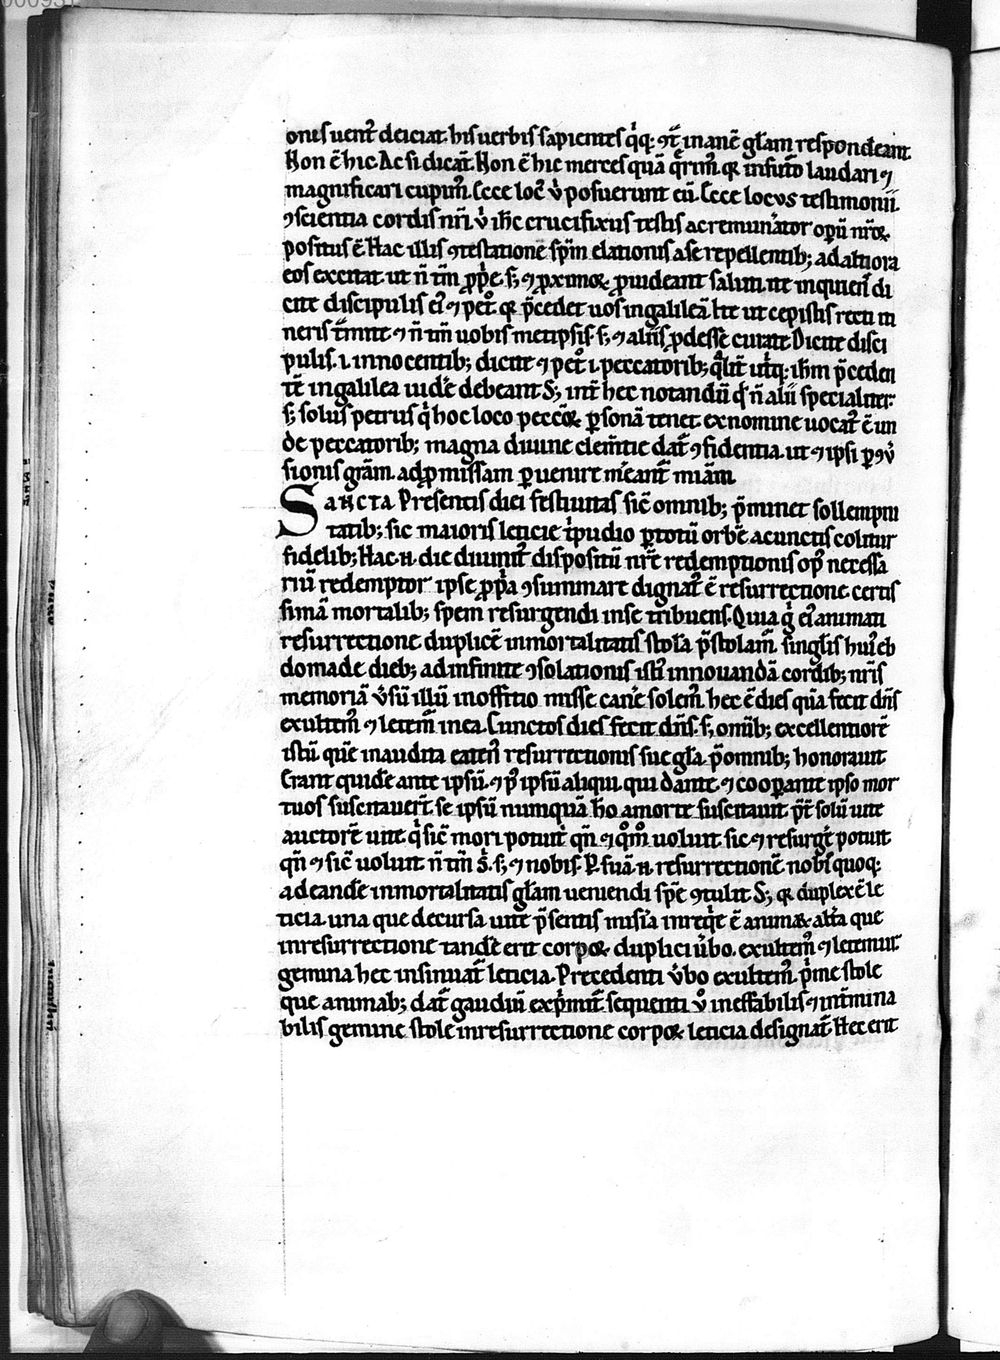 onis uent̄ deiciat. his uerbis sapientes q̇q; ꝯt̄ inanē gl̄am respondeant.
Non ē hic. Ac si dicāt. Non ē hic merces quā q̄rim᷒. qꝛ in laudari ⁊
magnificari cupim᷒. Ecce loc᷒ ů posuerunt eū. Ecce locus testimonii
ꝯscientia cordis nr̄i ů ih̄c crucifixus testis ac remunator opū nr̄oꝝ
positus ē. Hac illis ꝯtestatione sp̄m elationis a se repellentib; ad altiora
eos excitat. ut n̄ tm̄ ꝓp̄e. s; ⁊ ꝓximoꝝ ꝓuideant saluti. ut inquiens di
cite discipulis ei᷒ ⁊ pet᷒ qꝛ p̄cedet uos in galileā. Ite ut cepistis recti
neris ⁊ n̄ tm̄ uobis metipsis. s; ⁊ aliis ꝓdesse curate. Dicite disci
pulis .i. innocentib; dicite ⁊ pet᷒ .i. peccatorib; utq; ih̄m p̄ceden
tē in galilea uidē debeant. S; int̄ hec notandū qđ n̄ alii specialiter
s; solus petrus q̇ hoc loco peccōꝝ ꝑsonā tenet. ex nomine uocat᷒ ē. un
de peccatorib; magna diuine clem̄tie dat᷒ ꝯfidentia. ut ⁊ ipsi ꝑ ꝯů
sionis grām. ad ꝓmissam ꝑuenire mn̄iam
Sancta Presentis diei festiuitas sic̄ omnib; p̄minet sollempni
tatib; sic maioris leticie t̄pudio ꝑ totū orbē a cunctis colitur
fidelib; Hac. n. die diuinit᷒ dispositū nr̄e redemptionis op᷒ necessa
riū redemptor ipse ꝓp̄a ꝯsummare dignat᷒ ē resurrectione. certis
simā mortalib; spem resurgendi in se tribuens. Quia q̇ ei᷒ animati
resurrectione duplicē inmortalitatis stola p̄stolam᷒. singlis hui᷒ eb
domade dieb; ad infinite ꝯsolationis isti᷒ innouandā cordib; nr̄is
memoriā ůsū illū in offitio misse canē solem᷒. hec ē dies quā fecit dn̄s
exultem᷒ ⁊ letem᷒ in ea. Cunctos dies fecit dn̄s. s; omīb; excellentiorē
istū quē inaudita eaten᷒ resurrectionis sue gl̄a p̄ omnib; honorauit
Erant quidē ante ipsū. ⁊ p᷒ ipsū aliqui. qui dante ⁊ cooꝑante ipso mor
tuos suscitauer̄t. se ipsū numquā h̄o a morte suscitauit p̄t solū uite
auctorē uite. q̇ sic̄ mori potuit qn̄ ⁊ qͦmͦ uoluit sic ⁊ resurge potuit
qn̄ ⁊ sic̄ uoluit n̄ tm̄ s̄. s; ⁊ nobis. P suā n. resurrectionē nobis quoq;
ad eandē inmortalitatis gl̄am ueniendi spē ꝯtulit. S; qꝛ duplex ē le
ticia. una que decursa uite p̄sentis misia in reqe ē animaꝝ. alt̄a que
in resurrectione tandē erit corpoꝝ. duplici ůbo. exultem᷒ ⁊ letemur
gemina hec insinuat᷒ leticia. Precedenti ůbo exultem᷒. p̄me stole
que animab; dat᷒ gaudiū exp̄mit᷒. sequenti ů ineffabilis ⁊ int̄mina
bilis gemine stole in resurrectione corpoꝝ leticia designat᷒. Hec erit